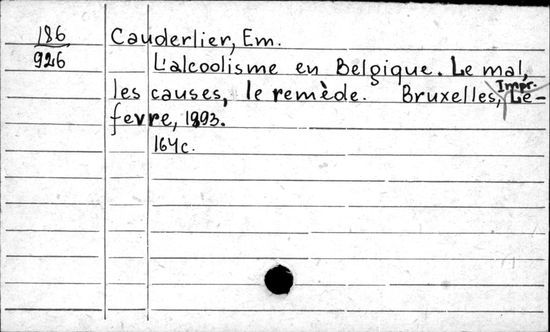 186 Cauderlier, Em.
926 L'alcoolisme en Belgique. Le mal,
les causes, le remède. Bruxelles, Impr. Le-
fevre, 1893.
164c.